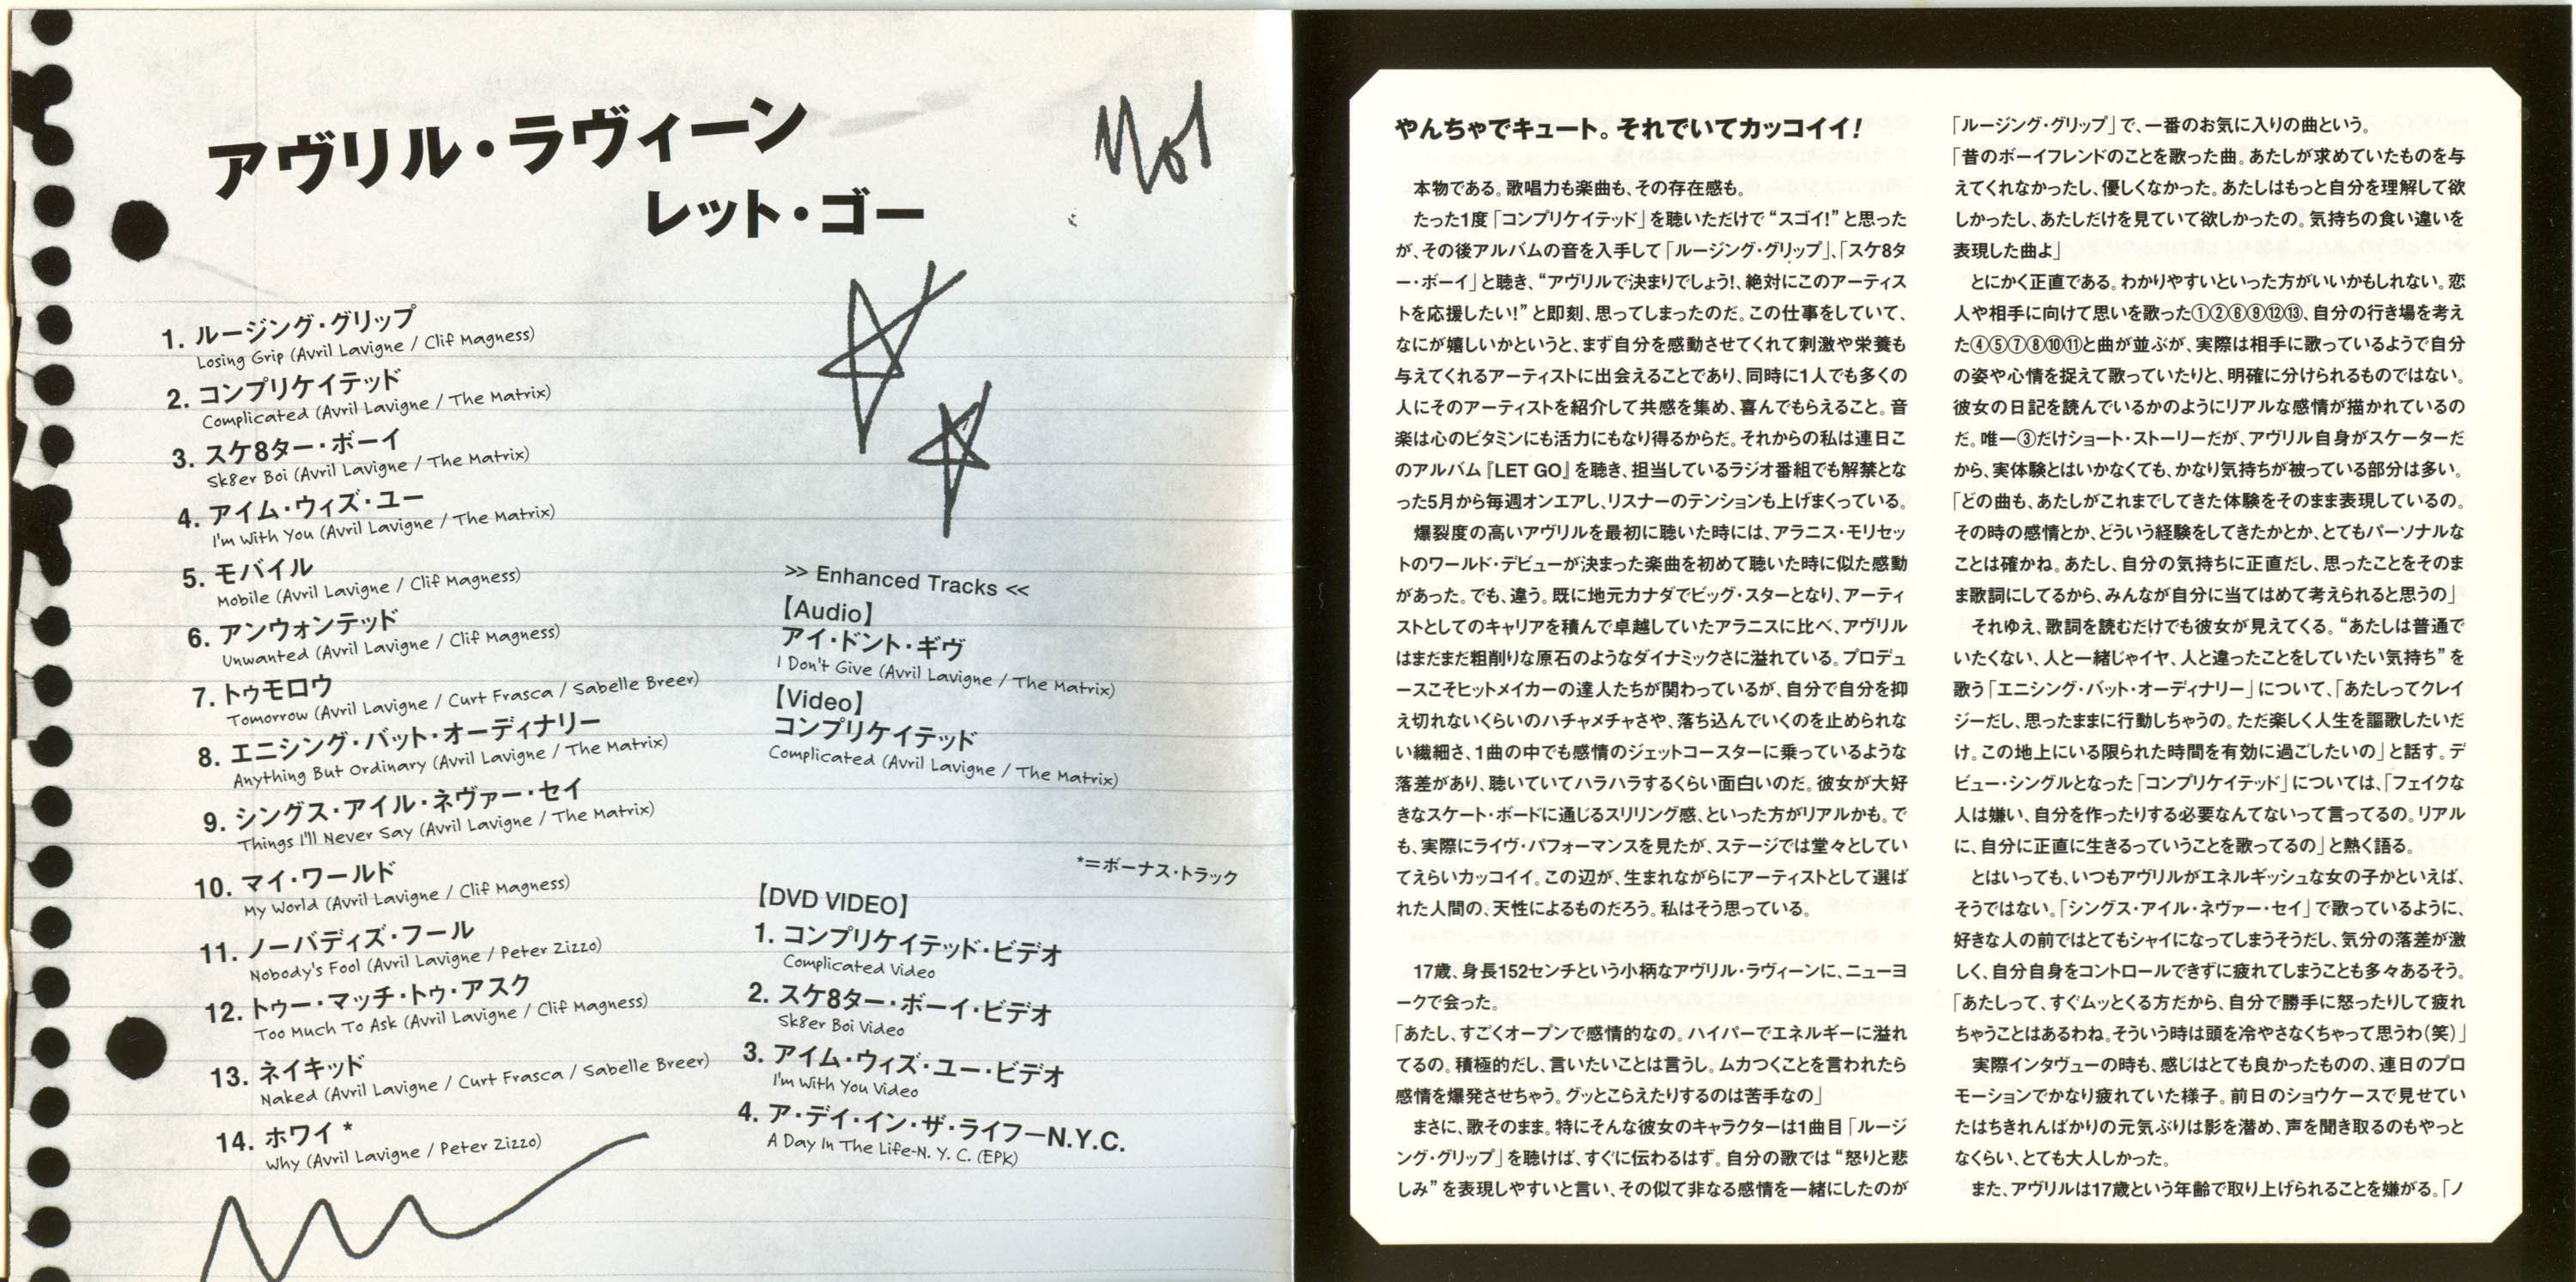 アヴリル・ラヴィーン
レット・ゴー
1. ルージング・グリップ
Losing Grip (Avril Lavigne / Clif Magness)
2. コンプリケイテッド
Complicated (Avril Lavigne / The Matrix)
3. スケ8ター・ボーイ
Sk8er Boi (Avril Lavigne / The Matrix)
4. アイム・ウィズ・ユー
I'm With You (Avril Lavigne / The Matrix)
5. モバイル
Mobile (Avril Lavigne / Clif Magness)
6. アンウォンテッド
Unwanted (Avril Lavigne / Clif Magness)
7. トゥモロウ
Tomorrow (Avril Lavigne / Curt Frasca / Sabelle Breer)
8. エニシング・バット・オーディナリー
Anything But Ordinary (Avril Lavigne / The Matrix)
9. シングス・アイル・ネヴァー・セイ
Things I'll Never Say (Avril Lavigne / The Matrix)
10. マイ・ワールド
My World (Avril Lavigne / Clif Magness)
11. ノーバディズ・フール
Nobody's Fool (Avril Lavigne / Peter Zizzo)
12. トゥー・マッチ・トゥ・アスク
Too Much To Ask (Avril Lavigne / Clif Magness)
13. ネイキッド
Naked (Avril Lavigne / Curt Frasca / Sabelle Breer)
14. ホワイ *
Why (Avril Lavigne / Peter Zizzo)
>> Enhanced Tracks <<
【Audio】
アイ・ドント・ギヴ
I Don't Give (Avril Lavigne / The Matrix)
【Video】
コンプリケイテッド
Complicated (Avril Lavigne / The Matrix)
*=ボーナス・トラック
【DVD VIDEO】
1. コンプリケイテッド・ビデオ
Complicated Video
2. スケ8ター・ボーイ・ビデオ
Sk8er Boi Video
3. アイム・ウィズ・ユー・ビデオ
I'm With You Video
4. ア・デイ・イン・ザ・ライフーN.Y.C.
A Day In The Life-N. Y. C. (EPK)
やんちゃでキュート。それでいてカッコイイ!
本物である。歌唱力も楽曲も、その存在感も。
たった1度「コンプリケイテッド」を聴いただけで“スゴイ!”と思った
が、その後アルバムの音を入手して「ルージング・グリップ」、「スケ8タ
ー・ボーイ」と聴き、“アヴリルで決まりでしょう!、絶対にこのアーティス
トを応援したい!”と即刻、思ってしまったのだ。この仕事をしていて、
なにが嬉しいかというと、まず自分を感動させてくれて刺激や栄養も
与えてくれるアーティストに出会えることであり、同時に1人でも多くの
人にそのアーティストを紹介して共感を集め、喜んでもらえること。音
楽は心のビタミンにも活力にもなり得るからだ。それからの私は連日こ
のアルバム『LET GO』を聴き、担当しているラジオ番組でも解禁とな
った5月から毎週オンエアし、リスナーのテンションも上げまくっている。
爆裂度の高いアヴリルを最初に聴いた時には、アラニス・モリセッ
トのワールド・デビューが決まった楽曲を初めて聴いた時に似た感動
があった。でも、違う。既に地元カナダでビッグ・スターとなり、アーティ
ストとしてのキャリアを積んで卓越していたアラニスに比べ、アヴリル
はまだまだ粗削りな原石のようなダイナミックさに溢れている。プロデュ
ースこそヒットメイカーの達人たちが関わっているが、自分で自分を抑
え切れないくらいのハチャメチャさや、落ち込んでいくのを止められな
い繊細さ、1曲の中でも感情のジェットコースターに乗っているような
落差があり、聴いていてハラハラするくらい面白いのだ。彼女が大好
きなスケート・ボードに通じるスリリング感、といった方がリアルかも。で
も、実際にライヴ・パフォーマンスを見たが、ステージでは堂々としてい
てえらいカッコイイ。この辺が、生まれながらにアーティストとして選ば
れた人間の、天性によるものだろう。私はそう思っている。
17歳、身長152センチという小柄なアヴリル・ラヴィーンに、ニューヨ
ークで会った。
「あたし、すごくオープンで感情的なの。ハイパーでエネルギーに溢れ
てるの。積極的だし、言いたいことは言うし。ムカつくことを言われたら
感情を爆発させちゃう。グッとこらえたりするのは苦手なの」
まさに、歌そのまま。特にそんな彼女のキャラクターは1曲目「ルージ
ング・グリップ」を聴けば、すぐに伝わるはず。自分の歌では“怒りと悲
しみ”を表現しやすいと言い、その似て非なる感情を一緒にしたのが
「ルージング・グリップ」で、一番のお気に入りの曲という。
「昔のボーイフレンドのことを歌った曲。あたしが求めていたものを与
えてくれなかったし、優しくなかった。あたしはもっと自分を理解して欲
しかったし、あたしだけを見ていて欲しかったの。気持ちの食い違いを
表現した曲よ」
とにかく正直である。わかりやすいといった方がいいかもしれない。恋
人や相手に向けて思いを歌った①②⑥⑨⑫⑬、自分の行き場を考え
た④⑤⑦⑧⑩⑪と曲が並ぶが、実際は相手に歌っているようで自分
の姿や心情を捉えて歌っていたりと、明確に分けられるものではない。
彼女の日記を読んでいるかのようにリアルな感情が描かれているの
だ。唯一③だけショート・ストーリーだが、アヴリル自身がスケーターだ
から、実体験とはいかなくても、かなり気持ちが被っている部分は多い。
「どの曲も、あたしがこれまでしてきた体験をそのまま表現しているの。
その時の感情とか、どういう経験をしてきたかとか、とてもパーソナルな
ことは確かね。あたし、自分の気持ちに正直だし、思ったことをそのま
ま歌詞にしてるから、みんなが自分に当てはめて考えられると思うの」
それゆえ、歌詞を読むだけでも彼女が見えてくる。“あたしは普通で
いたくない、人と一緒じゃイヤ、人と違ったことをしていたい気持ち”を
歌う「エニシング・バット・オーディナリー」について、「あたしってクレイ
ジーだし、思ったままに行動しちゃうの。ただ楽しく人生を謳歌したいだ
け。この地上にいる限られた時間を有効に過ごしたいの」と話す。デ
ビュー・シングルとなった「コンプリケイテッド」については、「フェイクな
人は嫌い、自分を作ったりする必要なんてないって言ってるの。リアル
に、自分に正直に生きるっていうことを歌ってるの」と熱く語る。
とはいっても、いつもアヴリルがエネルギッシュな女の子かといえば、
そうではない。「シングス・アイル・ネヴァー・セイ」で歌っているように、
好きな人の前ではとてもシャイになってしまうそうだし、気分の落差が激
しく、自分自身をコントロールできずに疲れてしまうことも多々あるそう。
「あたしって、すぐムッとくる方だから、自分で勝手に怒ったりして疲れ
ちゃうことはあるわね。そういう時は頭を冷やさなくちゃって思うわ(笑)」
実際インタヴューの時も、感じはとても良かったものの、連日のプロ
モーションでかなり疲れていた様子。前日のショウケースで見せてい
たはちきれんばかりの元気ぶりは影を潜め、声を聞き取るのもやっと
なくらい、とても大人しかった。
また、アヴリルは17歳という年齢で取り上げられることを嫌がる。「ノ